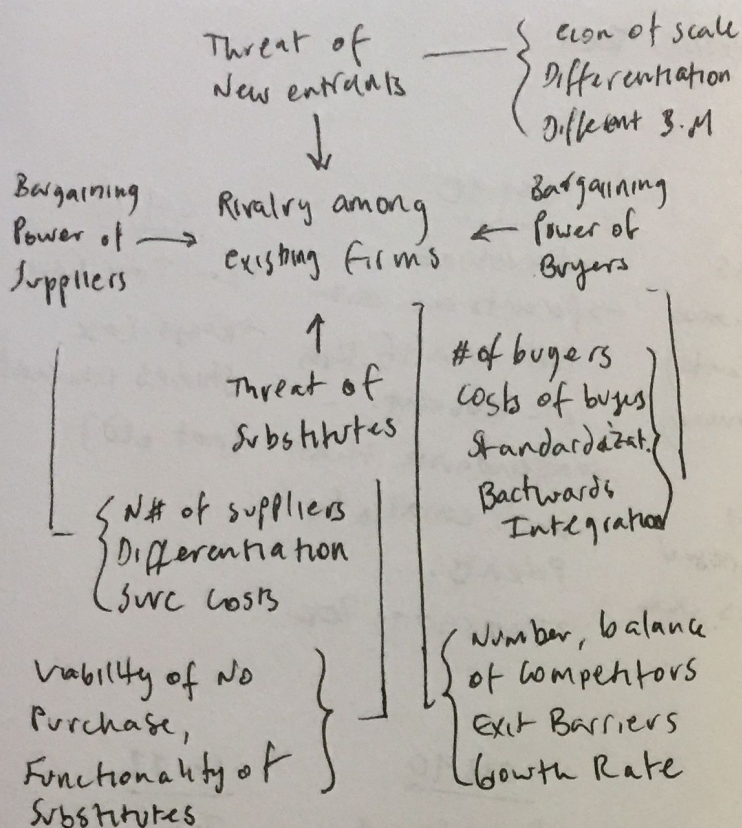 Threat of
New entrants
econ of scale
Differentiation
Different B.M
Bargaining
Power of
Suppliers
Rivalry among
existing firms
Bargaining
Power of
Buyers
Threat of
Substitutes
# of buyers
Costs of buyes
Standardizat.
Backwards
Integration
N# of suppliers
Differentiation
costs
Viability of No
Purchase,
Functionality of
Substitutes
Number, balance
of Competitors
Exit Barriers
Gowth Rate